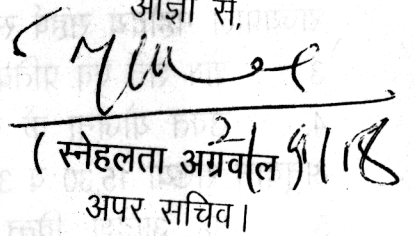 आज्ञा से,
(स्नेहलता अग्रवाल)
2/9/18
अपर सचिव।